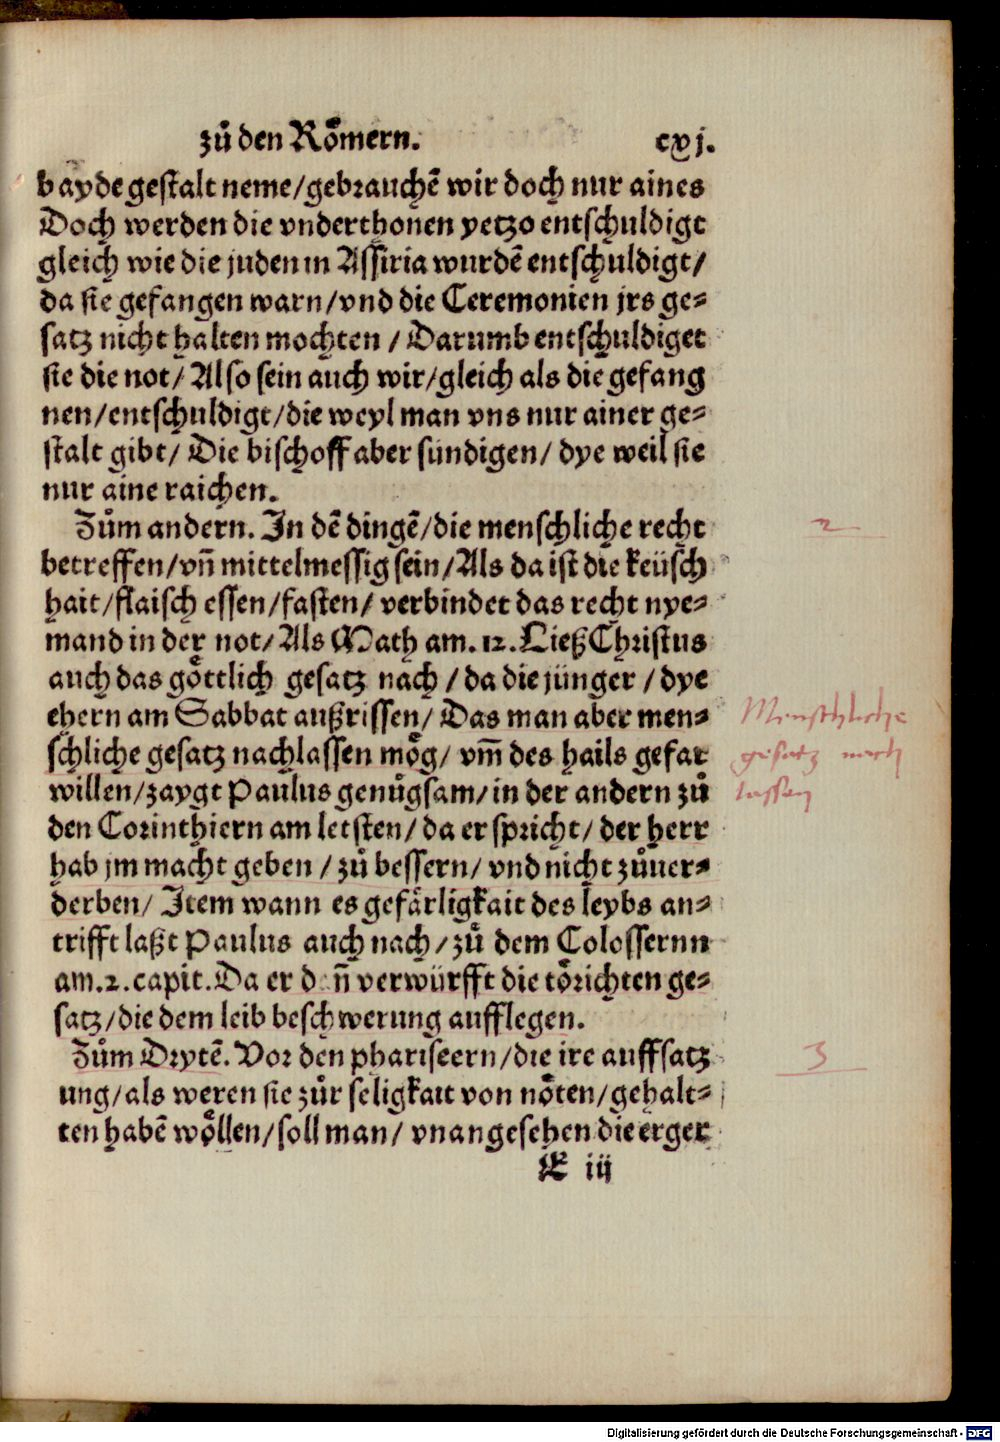 zů den Roͤmern. cxj.
bayde gestalt neme/gebrauchē wir doch nur aines
Doch werden die vnderthonen yetzo entschuldigt
gleich wie die juden in Assiria wurdē entschuldigt/
da sie gefangen warn/vnd die Ceremonien jrs ge⸗
satz nicht halten mochten / Darumb entschuldiget
sie die not/ Also sein auch wir/gleich als die gefang
nen/entschuldigt/die weyl man vns nur ainer ge⸗
stalt gibt/ Die bischoff aber sündigen/ dye weil sie
nur aine raichen.
Zům andern. In dē dingē/die menschliche recht
betreffen/vñ mittelmessig sein/Als da ist die keüsch
hait/flaisch essen/fasten/ verbindet das recht nye⸗
mand in der not/Als Math am. 12. Ließ Christus
auch das goͤttlich gesatz nach / da die jünger / dye
ehern am Sabbat außrissen/ Das man aber men⸗
schliche gesatz nachlassen moͤg/ vm̄ des hails gefar
willen/zaygt Paulus genůgsam/in der andern zů
den Corinthiern am letsten/da er spricht/ der herr
hab jm macht geben / zů bessern/ vnd nicht zůuer⸗
derben/ Item wann es gefaͤrligkait des leybs an⸗
trifft laßt Paulus auch nach/zů dem Colossernn
am. 2. capit. Da er d nñ verwürfft die toͤrichten ge⸗
satz/die dem leib beschwerung aufflegen.
Zům Drytē. Vor den phariseern/die ire auffsatz
ung/als weren sie zůr seligkait von noͤten/gehalt⸗
ten habē woͤllen/soll man/ vnangesehen die erger
K iij
2
Menschliche
gesatz nach
lassen
3
Digitalisierung gefördert durch die Deutsche Forschungsgemeinschaft - DFG